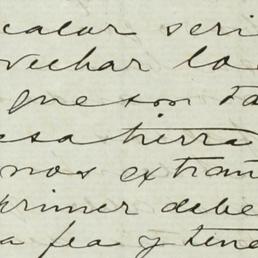 calor seri
vechar lo
que son ta
esa tierra
nos extrañ
primer debe
a fea y tene